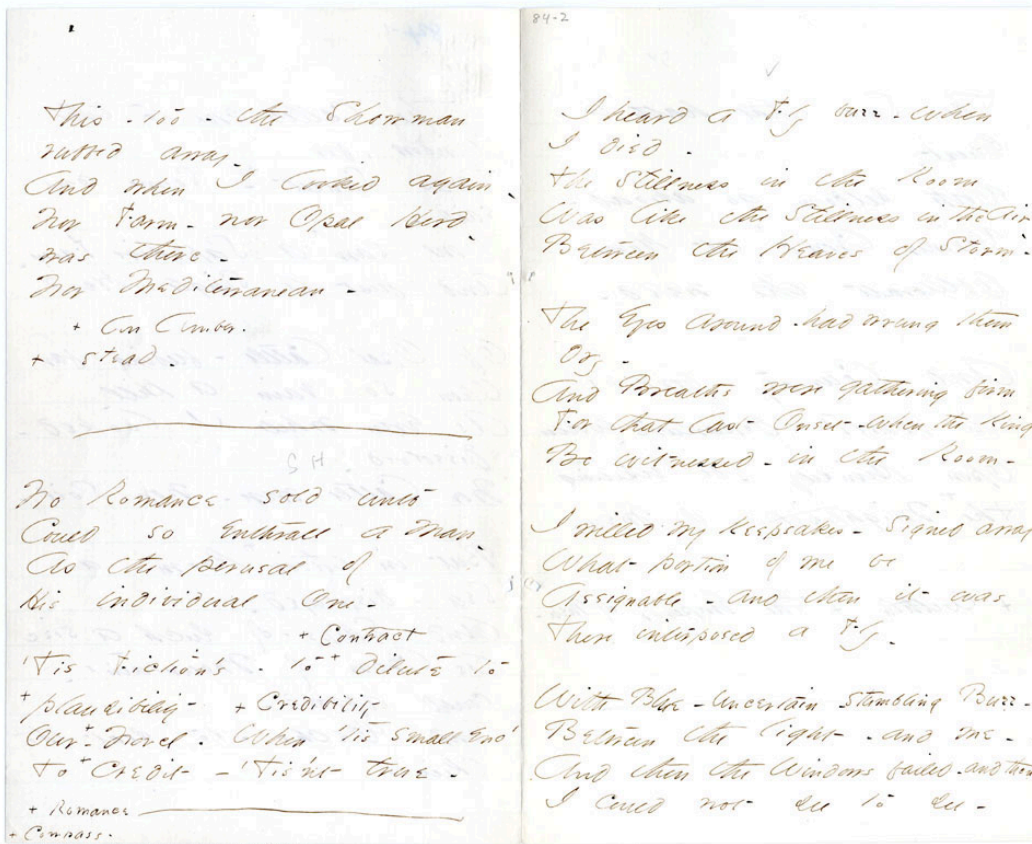 This - too - the Showman
rubbed away -
And when I looked again
Nor Farm - nor Opal Herd
was there -
Nor Mediterranean -
+ Cin Cimber.
+ stead.
H S
No Romance sold unto
Could so Enthrall a Man
As the perusal of
His individual One -
+ Contract
'Tis Fiction's - to + Dilute to
+ plausibility - + Credibility
Our - Novel. When 'tis small eno'
To + Credit - 'Tis'nt true -
+ Romance
+ Compass.
84-2
I heard a Fly buzz - when
I died -
The Stillness in the Room
Was like the Stillness in the Air -
Between the Heaves of Storm -
The Eyes around - had wrung them
dry -
And Breaths were gathering firm
For that last Onset - when the King
Be witnessed - in the Room -
I willed my Keepsakes - Signed away
What portion of me be
Assignable - and then it was
There interposed a Fly -
With Blue - uncertain - stumbling Buzz -
Between the light - and me -
And then the Windows failed - and then
I could not see to see -